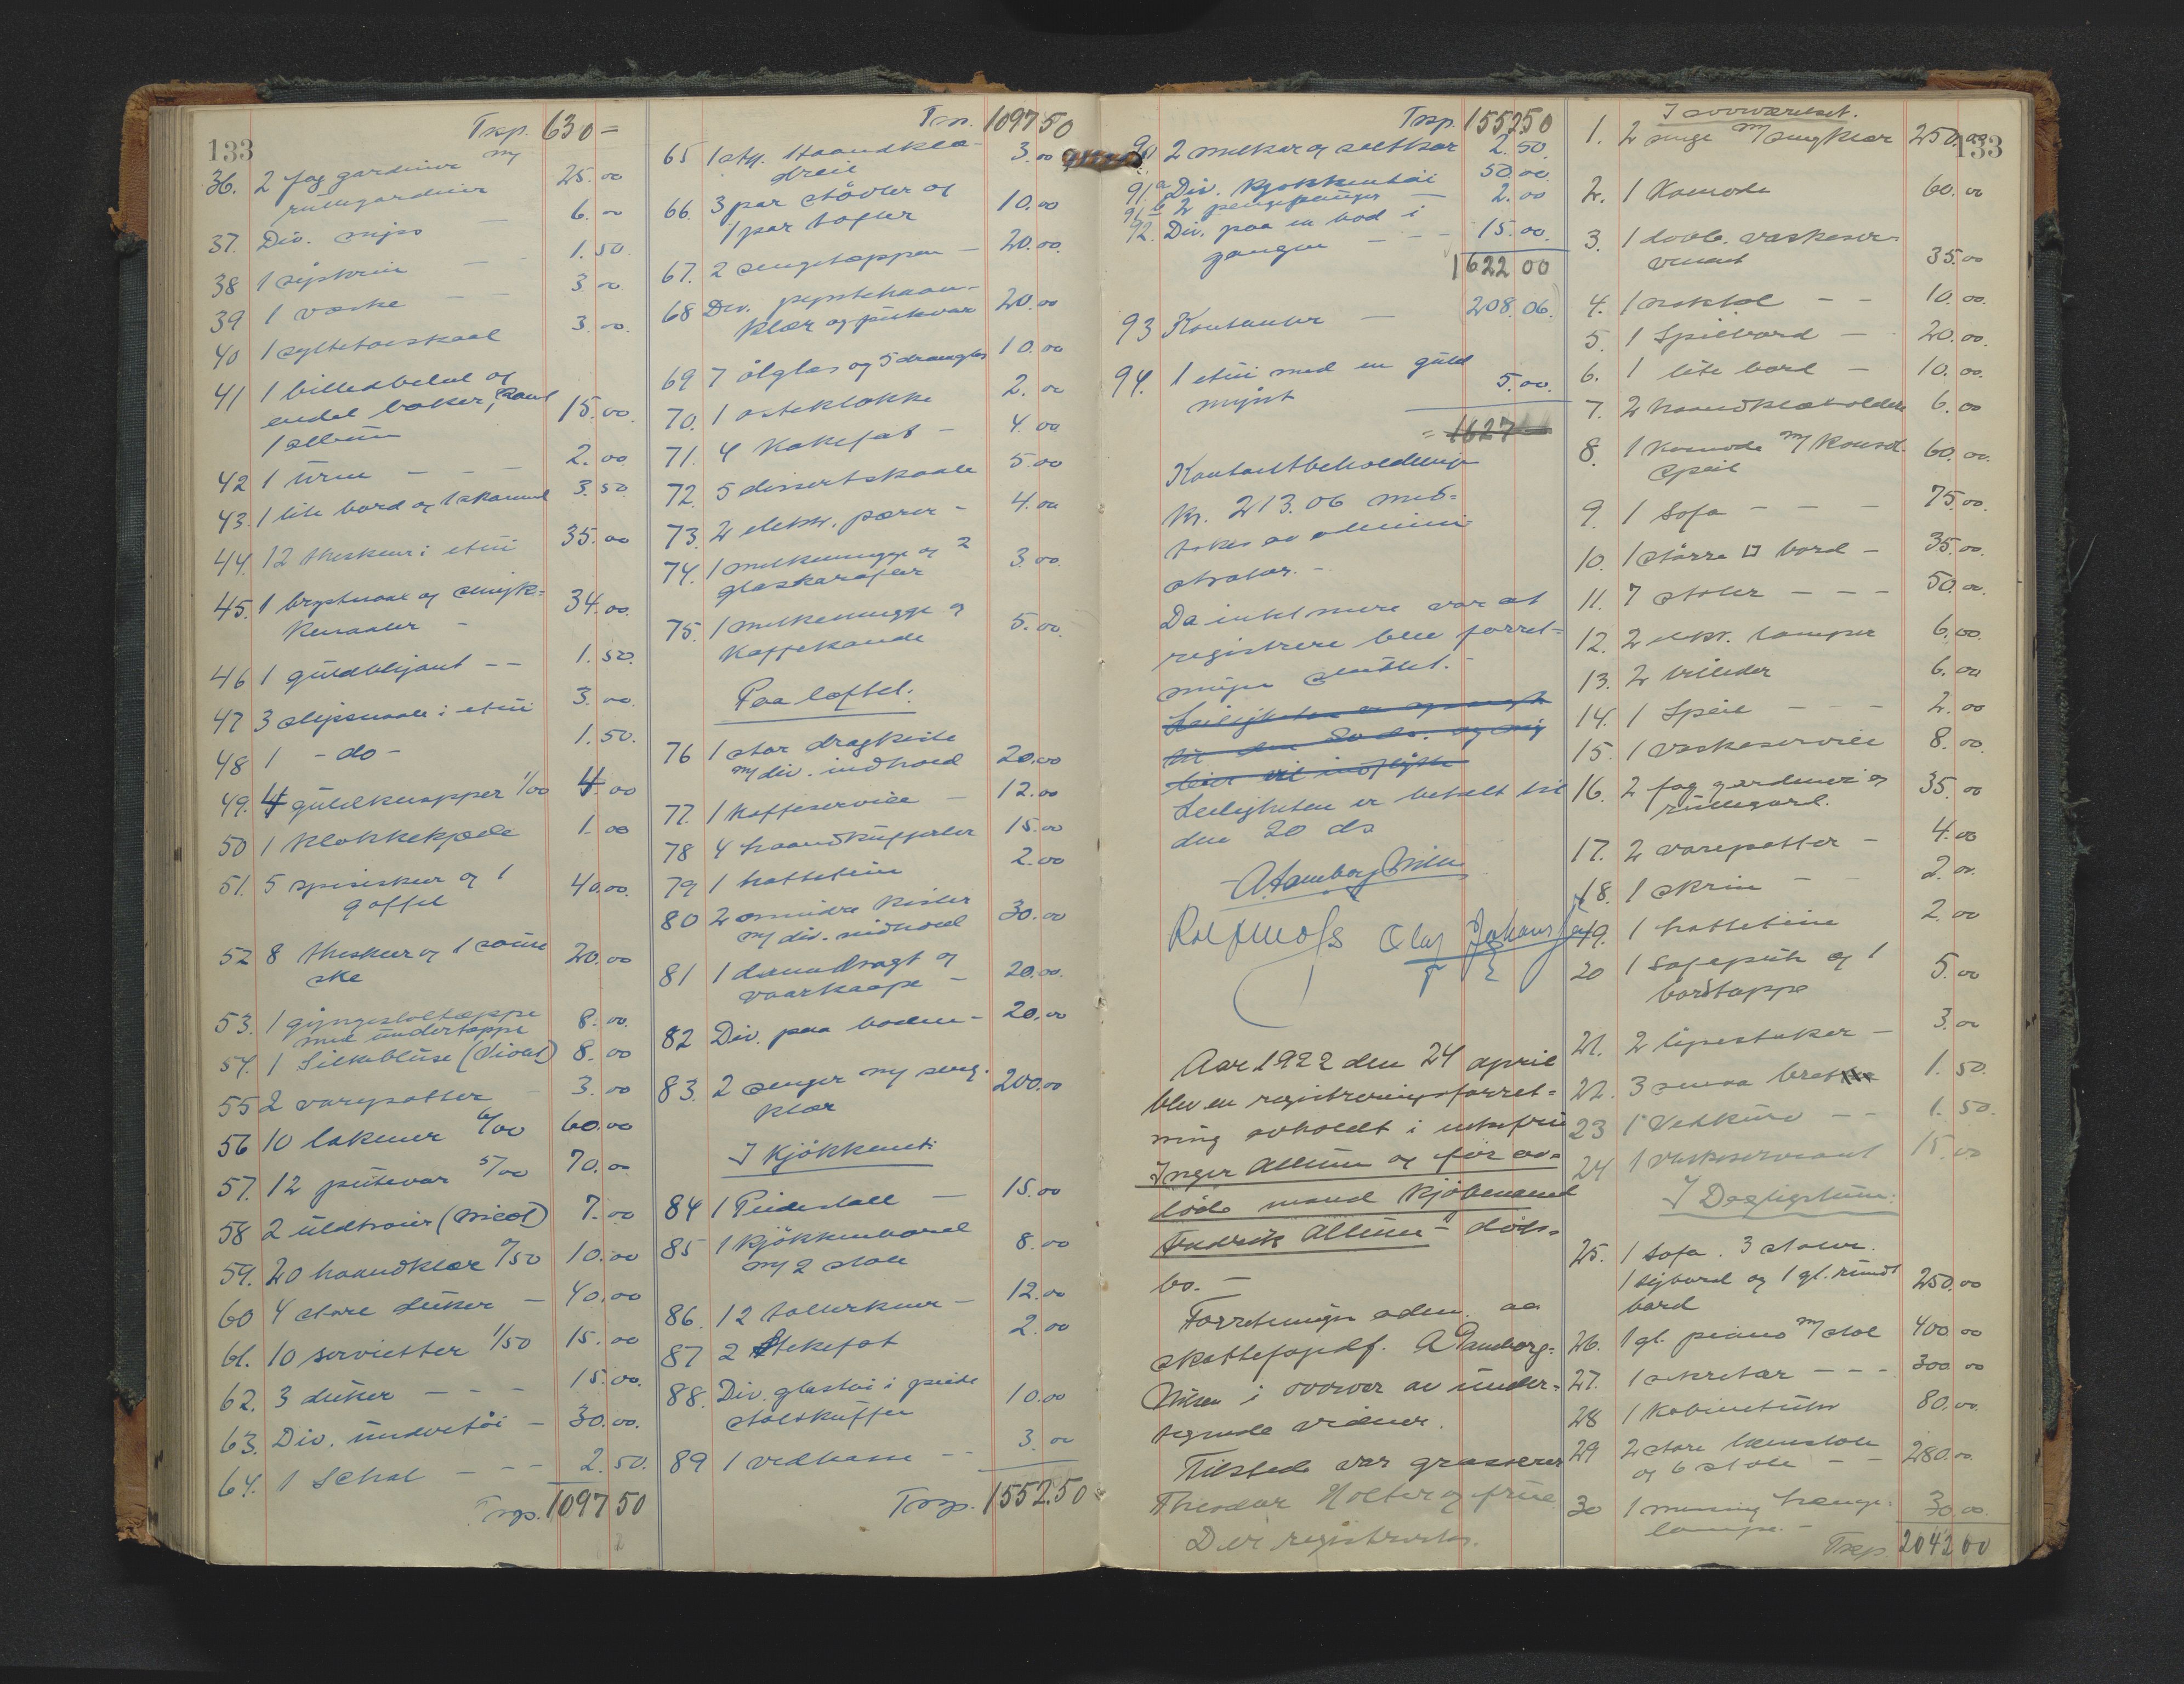 133
Trsp. 630 =
36. 2 fag gardiner m/
rullegardiner 25.00
37. Div. mips 6.00
38 1 syskrin — — 1.50
39 1 væske — — 3.00
40 1 syltetøiskaal 3.00
41 1 billedbibel og
endel bøker, samt
1 album 15.00.
42 1 urne — — — 2.00
43. 1 lite bord og 1 skammel 3.50
44. 12 theskeer i etui 35.00
45. 1 brystnaal og smyk-
kenaaler — 34.00
46 1 guldblyant — — 1.50.
47 3 slipsnaale i etui 3.00.
48 1 — do — 1.50.
49. 4 guldknapper 1/00 4.00
50 1 klokkekjæde 1.00
51. 5 spiseskeer og 1
gaffel 40.00.
52 8 theskeer og 1 sause
ske 20.00
53. 1 gyngestoltæppe
med undertæppe 8.00.
54. 1 Silkebluse (Violet) 8.00
55 2 varepotter — 3.00
56 10 lakener 6/00 60.00
57. 12 putevar 5/00 70.00
58 2 uldtrøier 7.00
59. 20 haandklær 0/50 10.00
60 4 store duker — 40.00
61. 10 servietter 1/50 15.00
62. 3 duker — — — 15.00.
63. Div. undertøi — 30.00.
64. 1 Schal — — — 2.50.
Trsp. 1097 50
Trsp. 1097 50
65 1 stk. Haandklæ-
dreie 3.00
66. 3 par støvler og
1 par tøfler 10.00
67. 2 sengetæpper — 20.00.
68 Div. pyntehaand-
klær og putevar 20.00
69 7 ølglas og 5 dramglas 10.00
70. 1 osteklokke 2.00
71. 4 Kakefat — 4.00
72. 5 dessertskaale 5.00
73. 2 elektr. pærer — 4.00
74. 1 melkemugge og 2
glaskarafler 3.00
75. 1 melkemugge og
Kaffekande 5.00.
Paa loftet.
76 1 stor dragkiste
m/ div. indhold 20.00
77. 1 kaffeservice — 12.00
78 4 haandkufferter 15.00
79 1 hatteteine 2.00
80 2 mindre kister
m/ div. indhold 30.00
81 1 damedragt og
vaarkaape — 20.00.
82 Div. paa boden — 20.00
83. 2 senger m/ seng-
klær 200.00
I Kjøkkenet:
84 1 Peidestall — 15.00
85 1 kjøkkenbord
m/ 2 stole 8.00
86. 12 tallerkner — 12.00
87 2 Stekefat 2.00
88. Div. glastøi i peide
stolskuffen 10.00
89 1 vedkasse — — 3.00
Trsp. 1552.50
Trsp. 1552.50
90 2 melkar og saltkar 2.50.
91.a Div. Kjøkkentøi 50.00.
91 b 2 pengepunger — 2.00
92. Div. paa en bod i
gangen — — — 15.00.
1622 00
93 Kontanter — 208.06.
94. 1 etui med en guld
mynt 5.00.
= 1627 —
Kontantbeholdning
kr. 213.06 mot-
tokes av admini-
strator. —
Da intet mere var at
registrere blev forret-
ningen sluttet. —
Leiligheten er opsagt
til den 20 ds. og ny
leier vil indflytte
Leiligheten er betalt til
den 20 ds
A. Hamborg Nilsen
Olaf Johansen
Aar 1922 den 24 april
blev en registreringsforret-
ning avholdt i enkefru
Inger Allum og før av-
døde mand kjøbmand
Fredrik Allum's døds-
bo. —
Forretningen adm. av
skattefogdf. A Hamborg-
Nilsen i overvær av under-
tegnede vidner.
Tilstede var grosserer
Theodor Holter og frue
Der registrertes.
133
I soveværelset.
1. 2 senge m/ sengklær 250.00
2. 1 Komode 60.00
3. 1 dovb. vaskeser-
venat 35.00
4. 1 naktbl — — 10.00.
5. 1 Spilbord — 20.00.
6. 1 lite bord — 10.00.
7. 2 haandklæholdere 6.00
8. 1 komode m/ konsol-
speil 60.00.
9. 1 Sofa — — — 75.00.
10. 1 større □ bord — 35.00
11. 7 stoler — — — 50.00.
12. 2 elktr. lamper 6.00.
13. 2 billeder 6.00
14. 1 Speil — — — 2.00
15. 1 vaskeservice 8.00.
16. 2 fag gardiner og
rullegard. 35.00
17. 2 varepotter — 4.00
18. 1 skrin — — 2.00.
19. 1 hatteteine 2.00
20 1 Sofapute og 1
bordtæppe 5.00
21. 2 lysestaker — 3.00
22. 3 smaa bret 1.50.
23 1 Vedkurv — — 1.50.
24 1 vaskeservant 15.00
I Dagligstuen.
25. 1 Sofa. 3 stoler.
1 sybord og 1 gl. rundt
bord 250.00
26. 1 gl. piano m/ stol 400.00
27. 1 sekretær — — — 300 00
28 1 kabinetuhr 80.00.
29 2 store lænstole
og 6 stole — — 280.00.
30 1 messing hænge-
lampe. — 30.00.
Trsp 2042 00